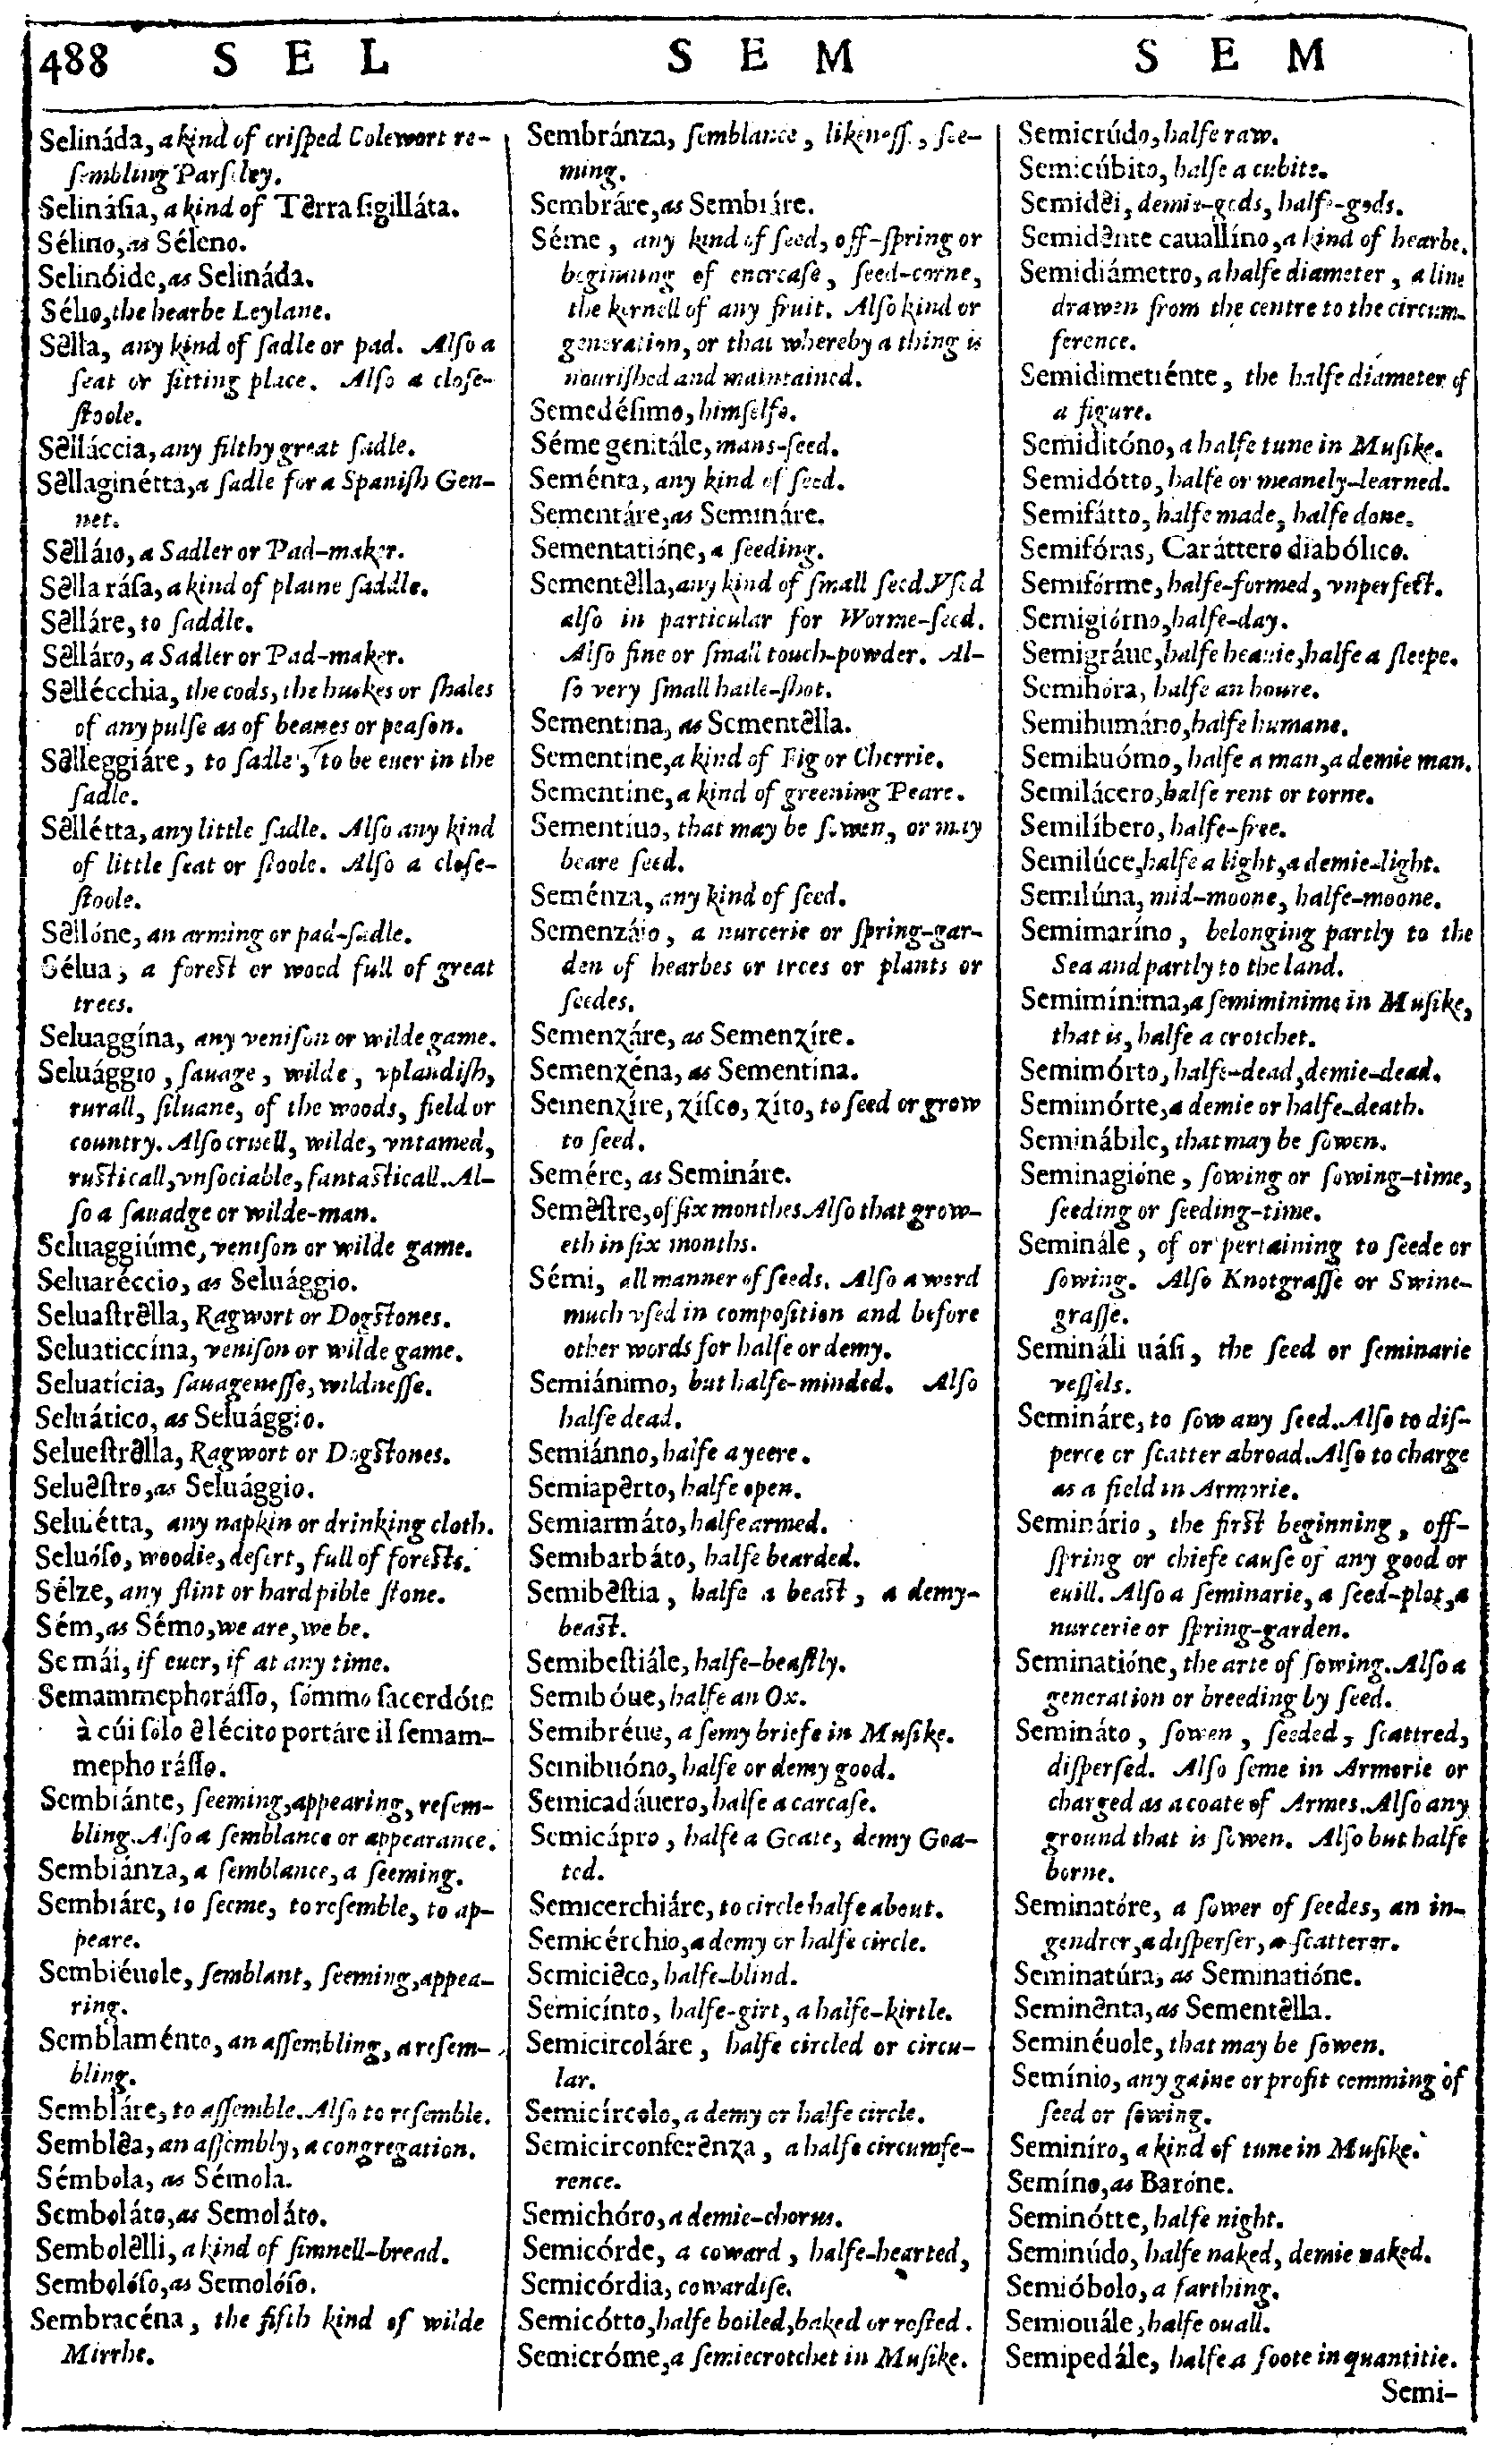 488 S E L
S E M
S E M
Selináda, a kind of crisped Colewort re-
sembling Parsley.
Selinásia, a kind of Tèrra sigilláta.
Sélino, as Séleno.
Selinóide, as Selináda.
Sélio, the hearbe Leylane.
Sèlla, any kind of sadle or pad. Also a
seat or sitting place. Also a close-
stoole.
Sèlláccia, any filthy great sadle.
Sèllaginétta, a sadle for a Spanish Gen-
net.
Sèlláio, a Sadler or Pad-maker.
Sèlla rása, a kind of plaine saddle.
Sèlláre, to saddle.
Sèlláro, a Sadler or Pad-maker.
Sèllécchia, the cods, the huskes or shales
of any pulse as of beanes or peason.
Sèlleggiáre, to sadle, to be euer in the
sadle.
Sèllétta, any little sadle. Also any kind
of little seat or stoole. Also a close-
stoole.
Sèllóne, an arming or pad-sadle.
Sélua, a forest or wood full of great
trees.
Seluaggína, any venison or wilde game.
Seluággio, sauage, wilde, vplandish,
rurall, siluane, of the woods, field or
country. Also cruell, wilde, vntamed,
rusticall, vnsociable, fantasticall. Al-
so a sauadge or wilde-man.
Seluaggiúme, venison or wilde game.
Seluaréccio, as Seluággio.
Seluastrèlla, Ragwort or Dogstones.
Seluaticcína, venison or wilde game.
Seluatícia, sauagenesse, wildnesse.
Seluático, as Seluággio.
Seluestrèlla, Ragwort or Dogstones.
Seluèstro, as Seluággio.
Seluétta, any napkin or drinking cloth.
Seluóso, woodie, desert, full of forests.
Sélze, any flint or hard pible stone.
Sém, as Sémo, we are, we be.
Se mái, if euer, if at any time.
Semammephorásso, sómmo sacerdóte
à cúi sólo è lécito portáre il semam-
mepho rásso.
Sembiánte, seeming, appearing, resem-
bling. Also a semblance or appearance.
Sembiánza, a semblance, a seeming.
Sembiáre, to seeme, to resemble, to ap-
peare.
Sembiéuole, semblant, seeming, appea-
ring.
Semblaménto, an assembling, a resem-
bling.
Sembláre, to assemble. Also to resemble.
Semblèa, an assembly, a congregation.
Sémbola, as Sémola.
Semboláto, as Semoláto.
Sembolèlli, a kind of simnell-bread.
Sembolóso, as Semolóso.
Sembracéna, the fifth kind of wilde
Mirrhe.
Sembránza, semblance, likenesse, see-
ming.
Sembráre, as Sembiáre.
Séme, any kind of seed, off-spring or
beginning of encrease, seed-corne,
the kernell of any fruit. Also kind or
generation, or that whereby a thing is
nourished and maintained.
Semedésimo, himselfe.
Séme genitále, mans-seed.
Seménta, any kind of seed.
Sementáre, as Semináre.
Sementatióne, a seeding.
Sementèlla, any kind of small seed. Vsed
also in particular for Worme-seed.
Also fine or small touch-powder. Al-
so very small haile-shot.
Sementína, as Sementèlla.
Sementíne, a kind of Fig or Cherrie.
Sementíne, a kind of greening Peare.
Sementíuo, that may be sowen, or may
beare seed.
Seménza, any kind of seed.
Semenzáio, a nurcerie or spring-gar-
den of hearbes or trees or plants or
seedes.
Semenzáre, as Semenzíre.
Semenzéna, as Sementína.
Semenzíre, zísco, zíto, to seed or grow
to seed.
Semére, as Semináre.
Semèstre, of six monthes. Also that grow-
eth in six months.
Sémi, all manner of seeds. Also a word
much vsed in composition and before
other words for halfe or demy.
Semiánimo, but halfe-minded. Also
halfe dead.
Semiánno, halfe a yeere.
Semiapèrto, halfe open.
Semiarmáto, halfe armed.
Semibarbáto, halfe bearded.
Semibèstia, halfe a beast, a demy-
beast.
Semibestiále, halfe-beastly.
Semibóue, halfe an Ox.
Semibréue, a semy briefe in Musike.
Semibuóno, halfe or demy good.
Semicadáuero, halfe a carcase.
Semicápro, halfe a Goate, demy Goa-
ted.
Semicerchiáre, to circle halfe about.
Semicérchio, a demy or halfe circle.
Semicièco, halfe-blind.
Semicínto, halfe-girt, a halfe-kirtle.
Semicircoláre, halfe circled or circu-
lar.
Semicírcolo, a demy or halfe circle.
Semicirconferènza, a halfe circumfe-
rence.
Semichóro, a demie-chorus.
Semicórde, a coward, halfe-hearted,
Semicórdia, cowardise.
Semicótto, halfe boiled, baked or rosted.
Semicróme, a semiecrotchet in Musike.
Semicrúdo, halfe raw.
Semicúbito, halfe a cubite.
Semidèi, demie-gods, halfe-gods.
Semidènte cauallíno, a kind of hearbe.
Semidiámetro, a halfe diameter, a line
drawen from the centre to the circum-
ference.
Semidimetiénte, the halfe diameter of
a figure.
Semiditóno, a halfe tune in Musike.
Semidótto, halfe or meanely-learned.
Semifátto, halfe made, halfe done.
Semifóras, Caráttero diabólico.
Semifórme, halfe-formed, vnperfect.
Semigiórno, halfe-day.
Semigráue, halfe heauie, halfe a sleepe.
Semihóra, halfe an houre.
Semihumáno, halfe humane.
Semihuómo, halfe a man, a demie man.
Semilácero, halfe rent or torne.
Semilíbero, halfe-free.
Semilúce, halfe a light, a demie-light.
Semilúna, mid-moone, halfe-moone.
Semimaríno, belonging partly to the
Sea and partly to the land.
Semimínima, a semiminime in Musike,
that is, halfe a crotchet.
Semimórto, halfe-dead, demie-dead.
Semimórte, a demie or halfe-death.
Seminábile, that may be sowen.
Seminagióne, sowing or sowing-time,
seeding or seeding-time.
Seminále, of or pertaining to seede or
sowing. Also Knotgrasse or Swine-
grasse.
Semináli uási, the seed or seminarie
vessels.
Semináre, to sow any seed. Also to dis-
perce or scatter abroad. Also to charge
as a field in Armorie.
Seminário, the first beginning, off-
spring or chiefe cause of any good or
euill. Also a seminarie, a seed-plot, a
nurcerie or spring-garden.
Seminatióne, the arte of sowing. Also a
generation or breeding by seed.
Semináto, sowen, seeded, scattred,
dispersed. Also seme in Armorie or
charged as a coate of Armes. Also any
ground that is sowen. Also but halfe
borne.
Seminatóre, a sower of seedes, an in-
gendrer, a disperser, a scatterer.
Seminatúra, as Seminatióne.
Seminènta, as Sementèlla.
Seminéuole, that may be sowen.
Semínio, any gaine or profit comming of
seed or sowing.
Seminíro, a kind of tune in Musike.
Semíno, as Baróne.
Seminótte, halfe night.
Seminúdo, halfe naked, demie naked.
Semióbolo, a farthing.
Semiouále, halfe ouall.
Semipedále, halfe a foote in quantitie.
Semi-